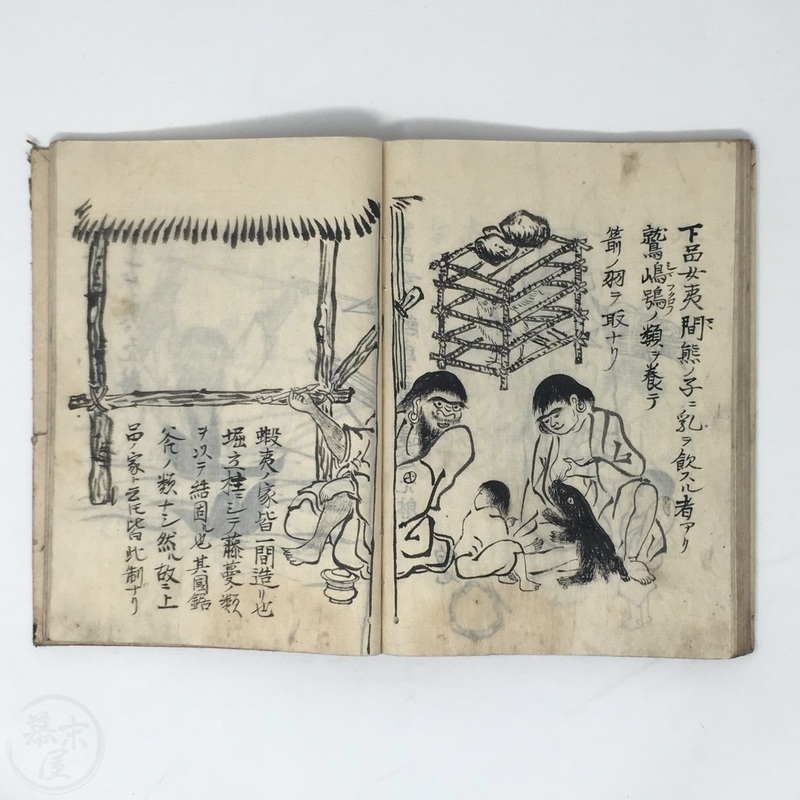 下品女夷間熊ノ子ニ乳ヲ飲スル者アリ
鷲嶋鴞ノ類ヲ養テ
箭ノ羽ヲ取ナリ
蝦夷ノ家皆一間造リ也
堀立柱ニシテ藤蔓ノ類
ヲ以テ結固ル也其國鋸
斧ノ類ナシ然ル故ニ上
品ノ家ト云氏皆此制ナリ
幕末屋